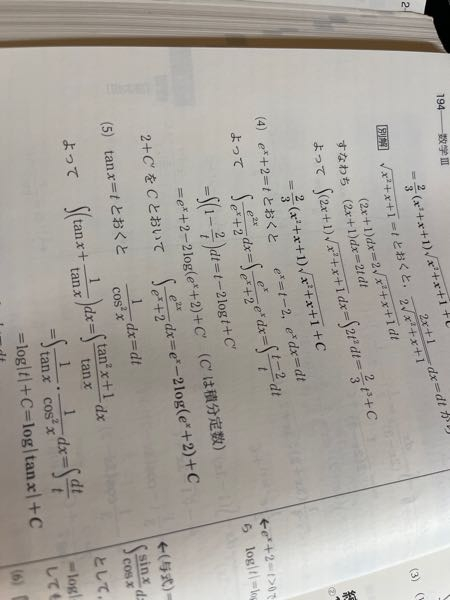 194——数学Ⅲ
=2/3(x²+x+1)√(x²+x+1)+C
別解 √(x²+x+1)=t とおくと, (2x+1)/(2√(x²+x+1))dx=dt から
(2x+1)dx=2√(x²+x+1)dt
すなわち (2x+1)dx=2tdt
よって ∫(2x+1)√(x²+x+1)dx=∫2t²dt=2/3t³+C
=2/3(x²+x+1)√(x²+x+1)+C
(4) eˣ+2=t とおくと eˣ=t-2, eˣdx=dt
よって ∫e²ˣ/(eˣ+2)dx=∫eˣ/(eˣ+2)eˣdx=∫(t-2)/t dt
=∫(1-2/t)dt=t-2logt+C′
=eˣ+2-2log(eˣ+2)+C′ (C′は積分定数)
2+C′をCとおいて ∫e²ˣ/(eˣ+2)dx=eˣ-2log(eˣ+2)+C
(5) tanx=t とおくと 1/cos²x dx=dt
よって ∫(tanx+1/tanx)dx=∫(tan²x+1)/tanx dx
=∫1/tanx・1/cos²x dx=∫dt/t
=log|t|+C=log|tanx|+C
←eˣ+2=t>0で
ら log|t|=log
←(与式)=
∫sinx/cosx d
として,
=log
しても
(6)
(3)
②